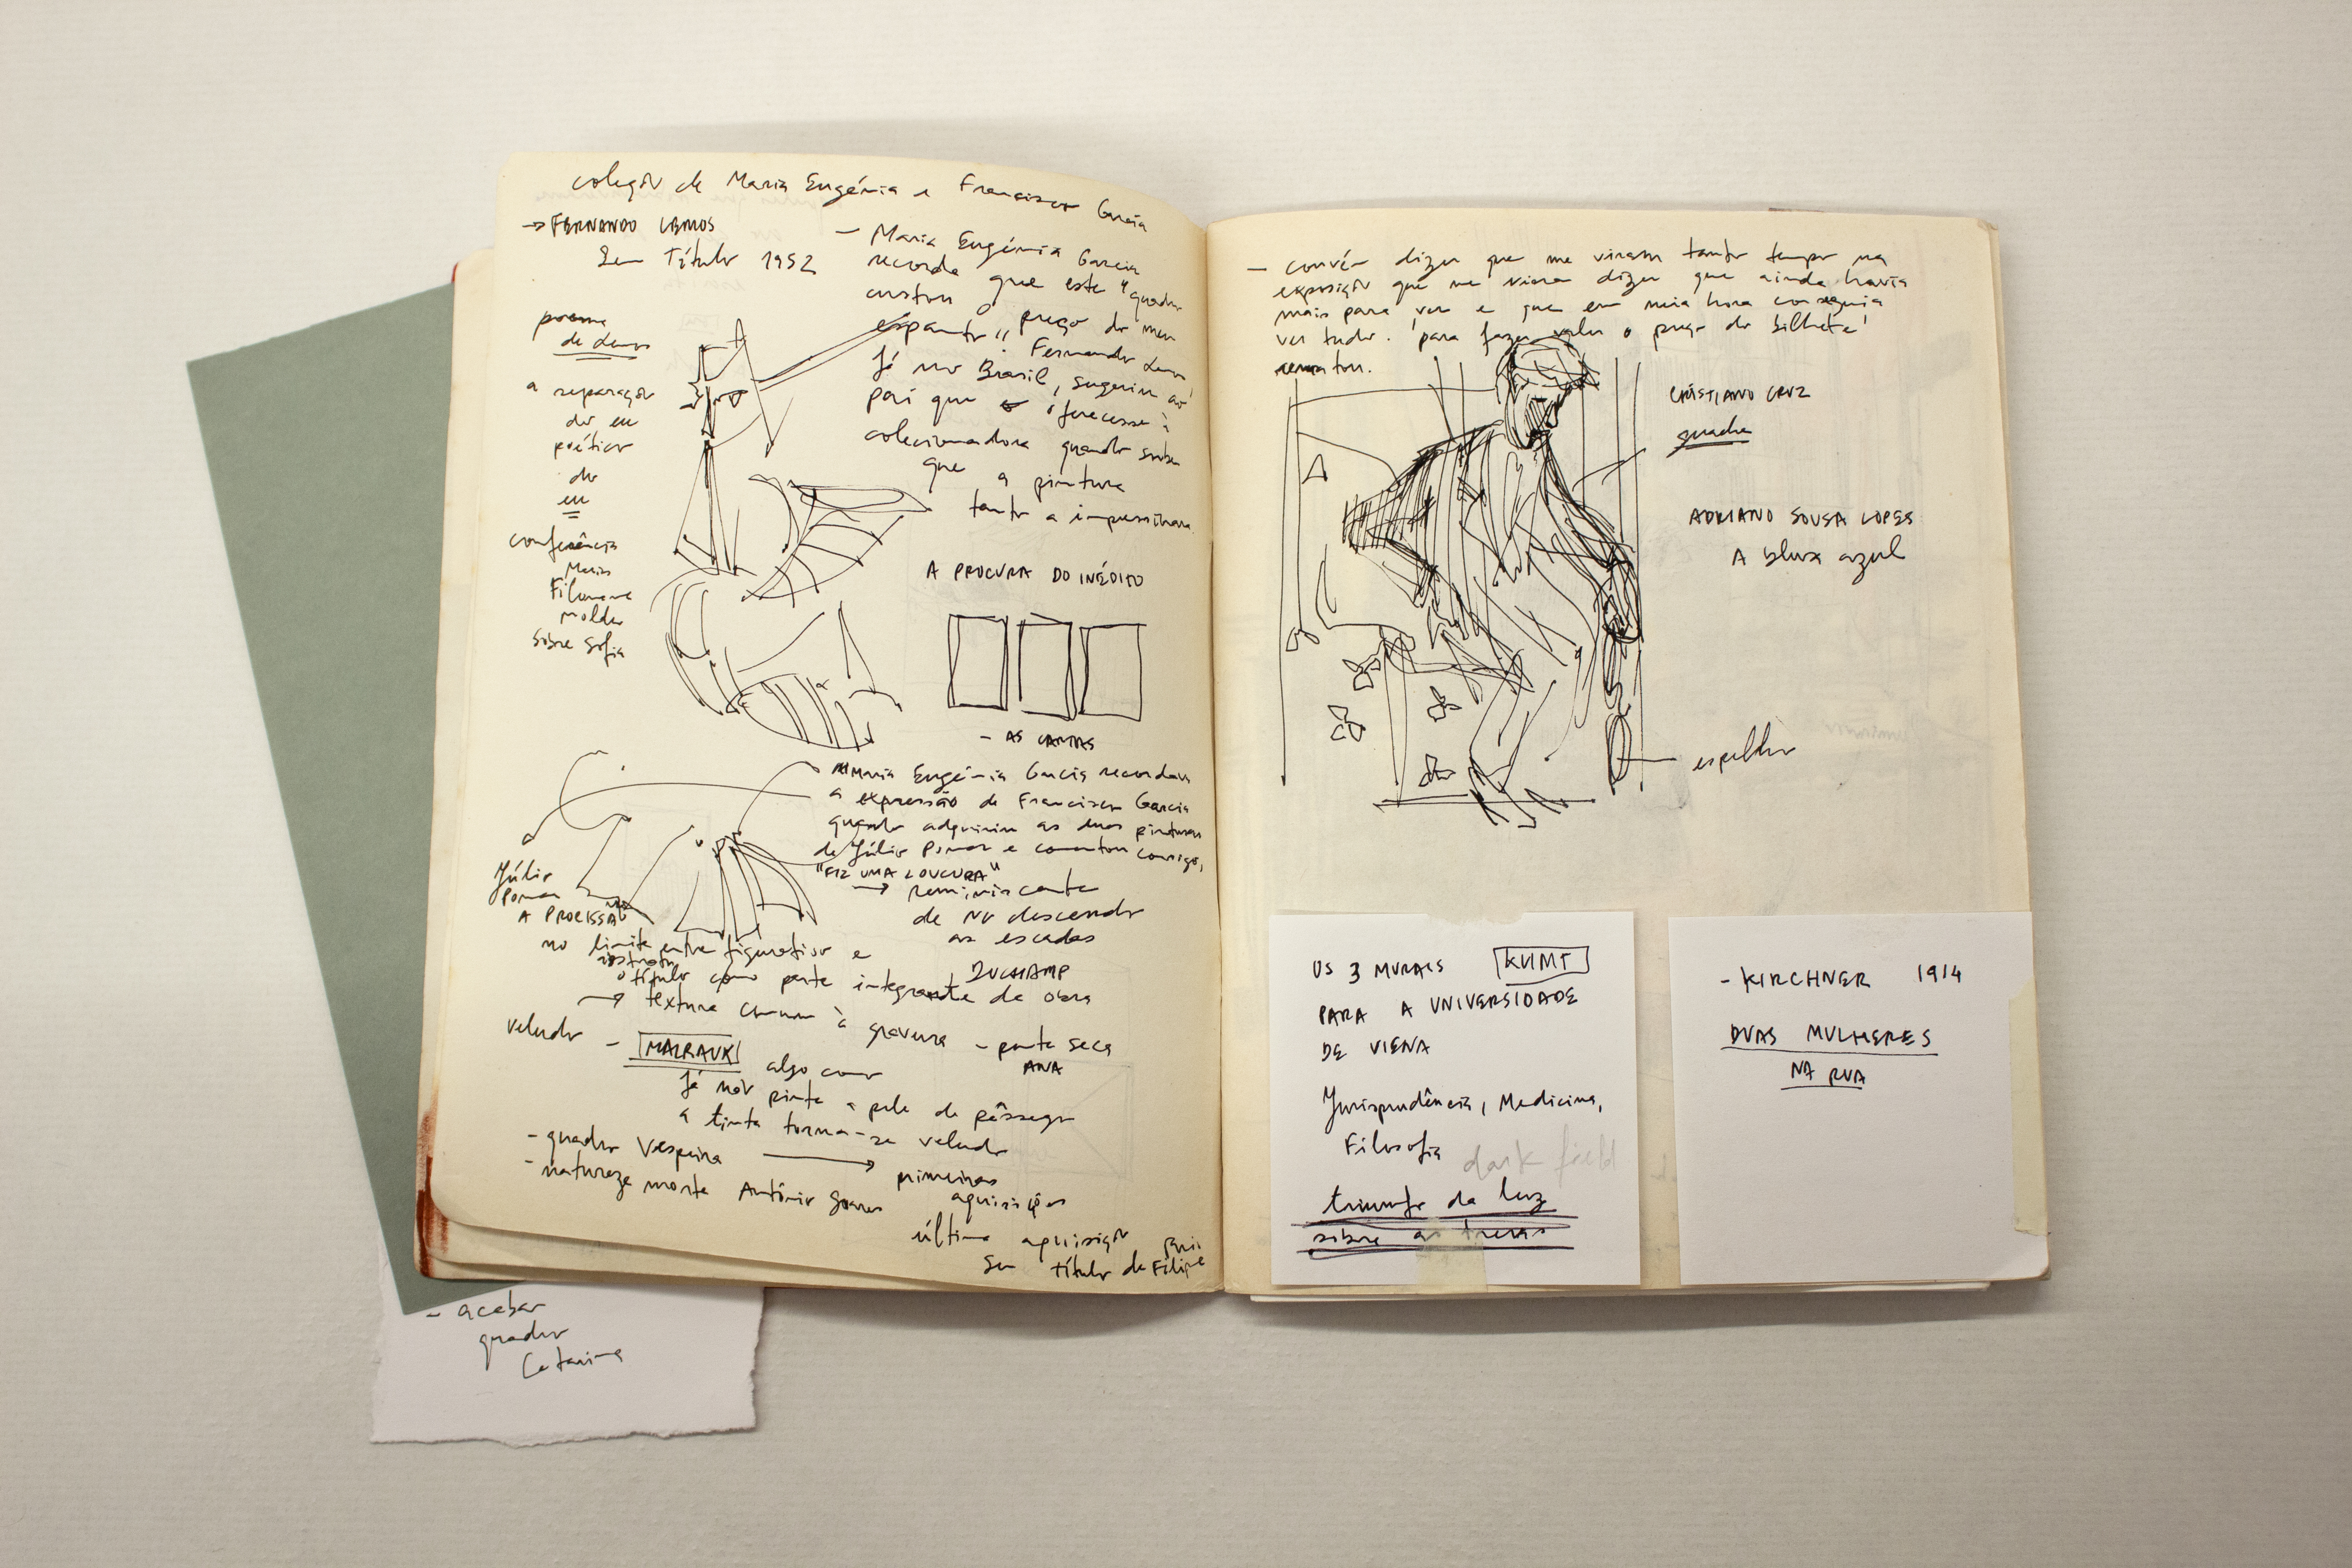 coleção de Maria Eugénia e Francisco Garcia
→ FERNANDO LEMOS
Sem Título 1952
poema
de Lemos
a separação
do eu
poético
do
eu
conferência
Maria
Filomena
Molder
sobre Sofia
— Maria Eugénia Garcia
recorda que este "quadro
custou o preço do meu
espanto", Fernando Lemos
já no Brasil, sugeriu ao
pai que o oferecesse à
colecionadora quando soube
que a pintura
tanto a impressionara.
A PROCURA DO INÉDITO
- AS CARTAS
Maria Eugénia Garcia recordava
a expressão de Francisco Garcia
quando adquiriu as duas pinturas
de Júlio Pomar e comentou consigo,
"FIZ UMA LOUCURA"
→ reminiscente
de nu descendo
as escadas
DUCHAMP
Júlio
Pomar
A PROCISSÃO
no limite entre figurativo e
abstrato
o título como parte integrante da obra
→ textura comum à gravura - ponta seca
ANA
veludo - MALRAUX algo como
já não pinta a pele do pêssego
a tinta torna-se veludo
- quadro Vespeira → primeiras
- natureza morta António Soares aquisições
última aquisição
Sem título de Rui Filipe
- acabar
quadro
Catarina
— convém dizer que me viram tanto tempo na
exposição que me vieram dizer que ainda havia
mais para ver e que em meia hora conseguia
ver tudo. 'para fazer valer o preço do bilhete'
rematou.
CRISTIANO CRUZ
quadro
ADRIANO SOUSA LOPES
A blusa azul
espelho
OS 3 MURAIS KLIMT
PARA A UNIVERSIDADE
DE VIENA
Jurisprudência, Medicina,
Filosofia
dark field
triunfo da luz
sobre as trevas
- KIRCHNER 1914
DUAS MULHERES
NA RUA